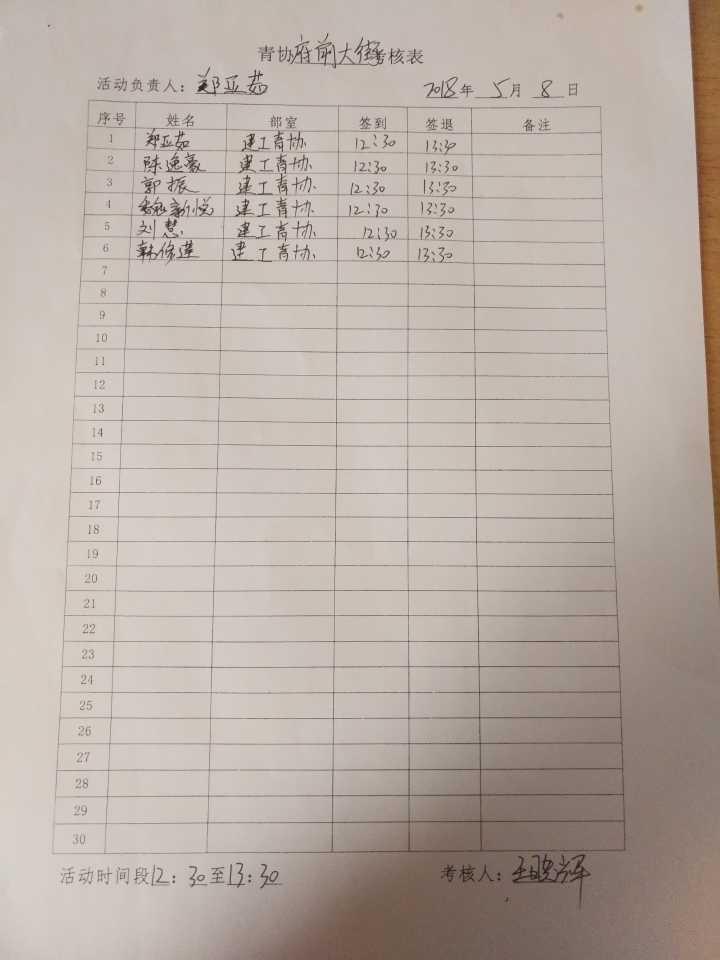 青协府前大街考核表
活动负责人：郑亚茹 2018年 5月 8日
序号 姓名 部室 签到 签退 备注
1 郑亚茹 建工青协 12:30 13:30
2 陈逸豪 建工青协 12:30 13:30
3 郭振 建工青协 12:30 13:30
4 新悦 建工青协 12:30 13:30
5 刘慧 建工青协 12:30 13:30
6 韩修莲 建工青协 12:30 13:30
7
8
9
10
11
12
13
14
15
16
17
18
19
20
21
22
23
24
25
26
27
28
29
30
活动时间段12：30至13：30 考核人：王晓辉